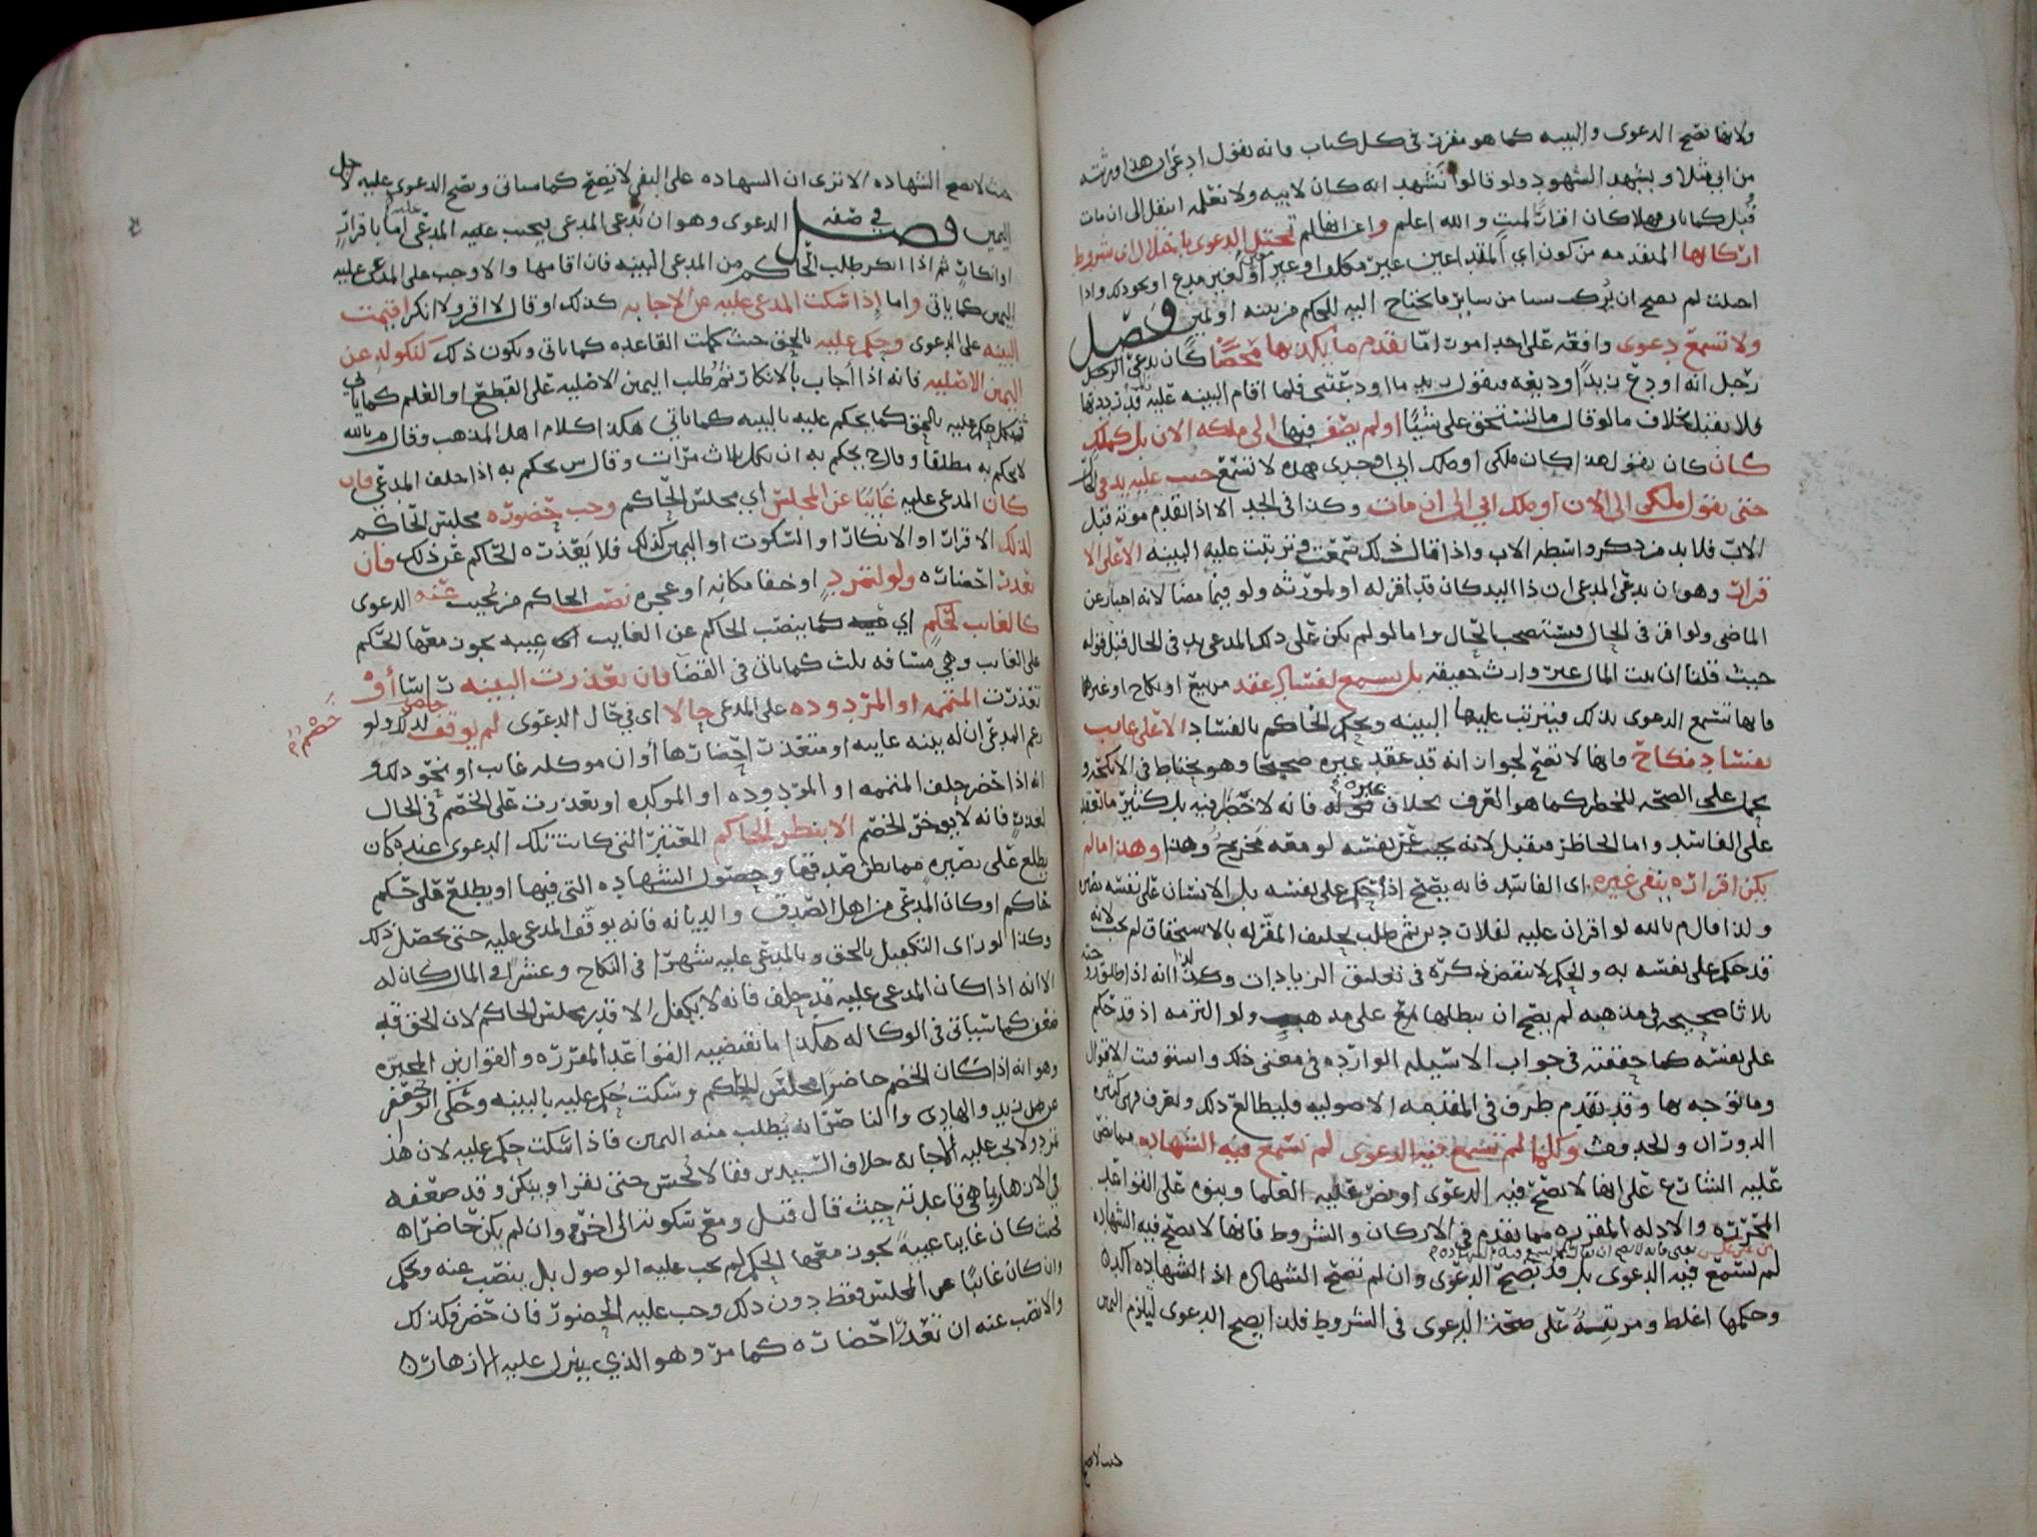 ولانها تصح الدعوى والبينه كما هو مقرر في كل كتاب فانه يقول ادعى ان هذا ورثته
من ابي مثلا ويشهد الشهود ولو قالوا نشهد انه كان لابيه ولا نعلمه انتقل الى ان مات
قبل كما ياتي وهلا كان اقرارا لميت والله اعلم وانما لم تختل الدعوى باختلال اي شروط
اركانها المتقدمه من كون اي المقداعين غير مكلف او غير او لغير مدع او نحو ذلك واذا
اختلت لم تصح ان يركب سبا من ساير ما يحتاج اليه للحكم من بينه او يمين فصل
ولا تسمع دعوى وافقه على احد امور اما تقدم ما يكذبها محضا كان يدعي الرجل
رجل انه اودع زيدا وديعه فيقول زيد ما اودعتني فلما اقام البينه عليه قد رددتها
فلا يقبل بخلاف ما لو قال ما تستحق علي شيئا او لم يضف فيها الى ملكه الان بل كملك
كان كان يقول هذا كان ملكي او ملك ابي او جدي فهذه لا تسمع حسب عليه يد في الحال
حتى يقول ملكي الى الان او ملك ابي الى ان مات وكذا في الجد الا اذا تقدم موته قبل
الاب فلا بد من ذكر واسطه الاب واذا قال ذلك سمعت وترتبت عليه البينه الا على الا
قرار وهو ان يدعي المدعي ان ذا اليد كان قد اقر له او لمورثه ولو فيما مضا لانه اخبار عن
الماضي ولو اقر في الحال فتستصحب الحال واما لو لم يكن على ذلك المدعى يد في الحال قبل قوله
حيث قلنا ان بيت المال غير وارث حقيقه بل يسمع لفساد عقد من بيع او نكاح او غيرها
فانها تسمع الدعوى بذلك فيترتب عليها البينه ويحكم الحاكم بالفساد الا على غايب
بفساد نكاح فانها لا تصح لجواز انه قد عقد غيره صحيحا وهو يحتاط في الانكحه و
يحمل على الصحه للخطر كما هو العرف بخلاف غيره فانه لا خطر فيه بل كثير ما تعقد
على الفاسد واما الحاظر فيقبل لانه يجيب عن نفسه لو معه مخرج وهذا وهذا ما لم
يكن اقراره بنفي غيره اي الفاسد فانه يصح اذا حكم على نفسه بل الانسان على نفسه بصيره
ولذا قال م بالله لو اقر ان عليه لفلان دين ثم طلب تحليف المقر له بالاستحقاق لم يجب لانه
قد حكم على نفسه به والحكم لا ينقض ذكره في تعليق الزيادات وكذا انه اذا طلق زوجته
ثلاثا صحيحه في مذهبه لم يصح ان يبطلها مع على مذهب ولو التزمه اذ قد حكم
على نفسه كما حققته في جواب الاسيله الوارده في معنى ذلك واستوفيت الاقوال
وما توجه بها وقد تقدم طرف في المقدمه الاصوليه فليطالع ذلك ولتعرف فهي كثيره
الدوران والحدوث وكلما لم تسمع فيه الدعوى لم تسمع فيه الشهاده مما نص
عليه الشارع على انها لا تصح فيه الدعوى او نص عليه العلما وبنوه على القواعد
المحرره والادله المقرره مما تقدم في الاركان والشروط فانها لا تصح فيه الشهاده
من غير عكس يعني فانه لا يصح ان يقال كلما لم تسمع فيه الشهاده م
لم تسمع فيه الدعوى بل قد تصح الدعوى وان لم تصح الشهاده اذ الشهاده اكد
وحكمها اغلظ ومرتبه على صحه الدعوى في الشروط فلذا تصح الدعوى ليلزم اليمين
حيث لا تصح
حيث لا تصح الشهاده الا ترى ان الشهاده على النفي لا تصح كما سياتي وتصح الدعوى عليه لاجل
اليمين فصل في صفه الدعوى وهو ان يدعي المدعي فيجيب عليه المدعى عليه اما باقرار
او انكار ثم اذا انكر طلب الحاكم من المدعي البينه فان اقامها والا وجب على المدعى عليه
اليمين كما ياتي واما إذا سكت المدعى عليه عن الاجابه كذلك او قال لا اقر ولا انكر اقيمت
البينه على الدعوى وحكم عليه بالحق حيث كملت القاعده كما ياتي ويكون ذلك كنكوله عن
اليمين الاصليه فانه اذا أجاب بالانكار ثم طلب اليمين الاصليه على القطع او العلم كما ياتي
فنكل حكم عليه بالحق كما يحكم عليه بالبينه كما ياتي هكذا كلام اهل المذهب وقال م بالله
لا يحكم به مطلقا وقال ح يحكم به ان نكل ثلاث مرات وقال س يحكم به اذا حلف المدعي فان
كان المدعى عليه غائبا عن المجلس أي مجلس الحاكم وجب حضوره مجلس الحاكم
لذلك الاقرار او الانكار او السكوت او اليمين كذلك فلا يعذره الحاكم عن ذلك فان
تعذر احضاره ولو لتمرد او خفا مكانه او عجزه نصب الحاكم من يجيب عنه الدعوى
كالغايب لحكم اي كما ينصب الحاكم عن الغايب اي غيبه يجوز معها الحكم
على الغايب وهي مسافه ثلث كما ياتي في القضا فان تعذرت البينه راسا أو
تعذرت المتممه او المردوده على المدعي حالا اي في حال الدعوى لم يوقف لذلك ولو
خصم
زعم المدعي ان له بينه غايبه او متعذر احضارها أو ان موكله غايب او نحو ذلك و
انه اذا حضر حلف المتممه او المردوده او الموكده او تعذرت على الخصم في الحال
لعذر فانه لا يوخر الخصم الا بنظر الحاكم المعتبر التي كانت تلك الدعوى عنده كان
يطلع على بصيره مما يظن صدقها وحصول الشهاده التي فيها او يطلع على حكم
حاكم او كان المدعي من اهل الصدق والديانه فانه يوقف المدعى عليه حتى يحصل ذلك
وكذا لو راى التكفيل بالحق وبالمدعى عليه شهرا في النكاح وعشرا في المال كان له
الا انه اذا كان المدعى عليه قد حلف فانه لا يكفل الا قدر مجلس الحاكم لان الحق فيه
كما سياتي في الوكاله هكذا ما تقتضيه القواعد المقرره والقوانين المحرره
وهو انه اذا كان الخصم حاضرا مجلس الحاكم وسكت حكم عليه بالبينه وحكى ابو جعفر
عن زيد والهادي والناصر انه يطلب منه اليمين فاذا سكت حكم عليه لان هذا
تمرد ولا يجب عليه الاجابه خلاف السيدين فقالا يحبس حتى يقر او ينكر وقد ضعفه
في الازهار ما هي قاعدته حيث قال قيل ومع سكوته الى اخره وان لم يكن حاضرا
بحيث كان غايبا غيبة يجوز معها الحكم لم يجب عليه الوصول بل ينصب عنه ويحكم
وان كان غائبا عن المجلس فقط دون ذلك وجب عليه الحضور فان حضر فكذلك
والا نصب عنه ان تعذر احضاره كما مر وهو الذي ينزل عليه الازهار